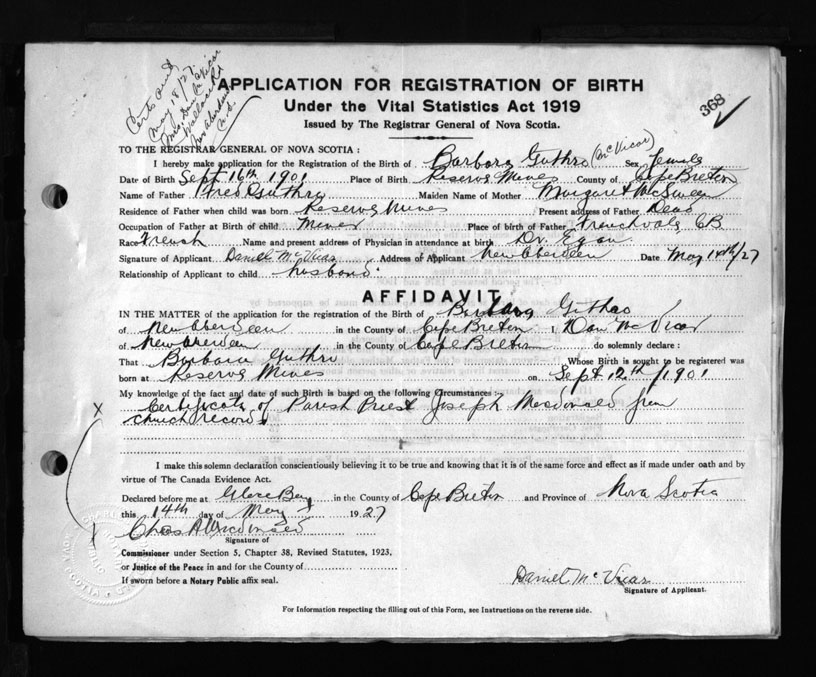 Cert sent
May 18/27
Mrs Dan McVicar
Wallace Rd
New Aberdeen
C.B.
APPLICATION FOR REGISTRATION OF BIRTH
Under the Vital Statistics Act 1919
Issued by The Registrar General of Nova Scotia.
368
TO THE REGISTRAR GENERAL OF NOVA SCOTIA :
I hereby make application for the Registration of the Birth of Barbara Guthro (McVicar) Sex Female
Date of Birth Sept 16th 1901 Place of Birth Reserve Mines County of Cape Breton
Name of Father Guthro Maiden Name of Mother Margaret McSween
Residence of Father when child was born Reserve Mines Present address of Father Dead
Occupation of Father at Birth of child Miner Place of birth of Father Frenchvale CB
Race French Name and present address of Physician in attendance at birth Dr. Egan
Signature of Applicant Daniel McVicar Address of Applicant New Aberdeen Date May 14th/27
Relationship of Applicant to child husband
AFFIDAVIT
IN THE MATTER of the application for the registration of the Birth of Barbara Guthro
of New Aberdeen in the County of Cape Breton I Dan McVicar
of New Aberdeen in the County of Cape Breton do solemnly declare :
That Barbara Guthro Whose Birth is sought to be registered was
born at Reserve Mines on Sept 12th 1901
My knowledge of the fact and date of such Birth is based on the following Circumstances :
X Certificate of Parish Priest Joseph Macdonald from
church records
I make this solemn declaration conscientiously believing it to be true and knowing that it is of the same force and effect as if made under oath and by
virtue of The Canada Evidence Act.
Declared before me at Glace Bay in the County of Cape Breton and Province of Nova Scotia
this 14th day of May 1927
Chas A Macdonald
Signature of
Commissioner under Section 5, Chapter 38, Revised Statutes, 1923,
or Justice of the Peace in and for the County of
If sworn before a Notary Public affix seal.
Daniel McVicar
Signature of Applicant.
For Information respecting the filling out of this Form, see Instructions on the reverse side.